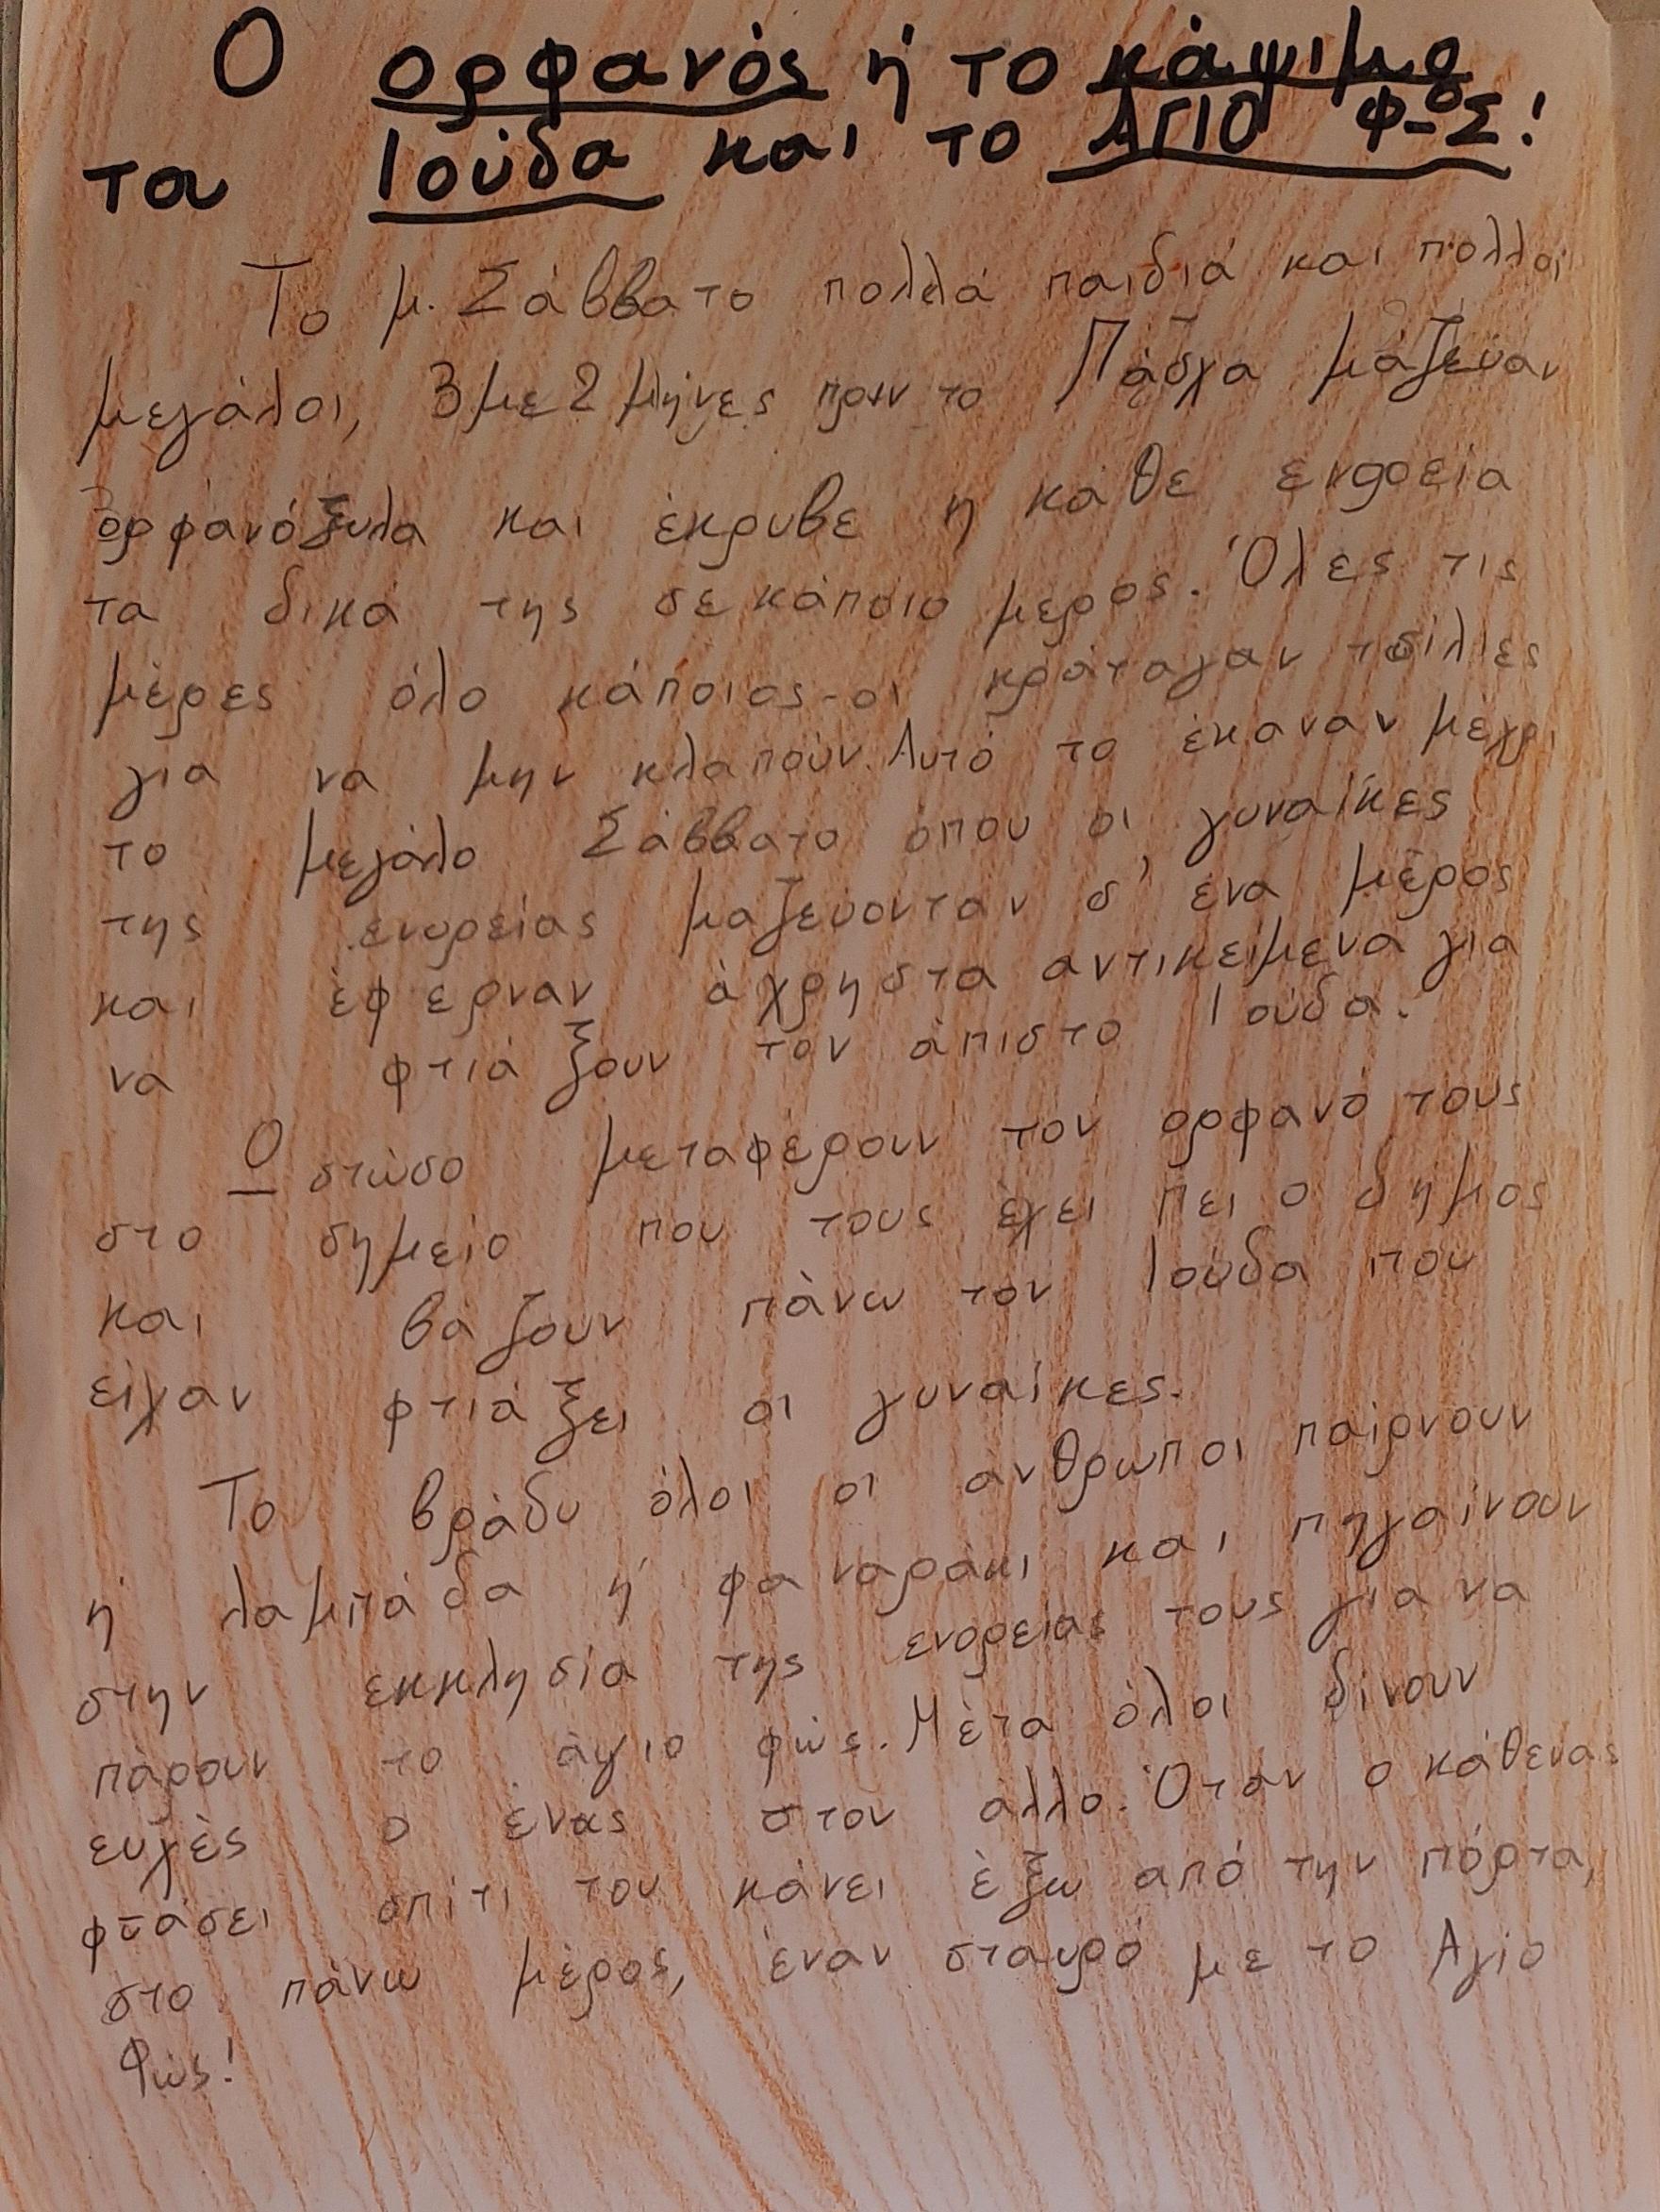 Ο ορφανός ή το κάψιμο
του Ιούδα και το ΆΓΙΟ ΦΩΣ!
Το μ. Σάββατο πολλά παιδιά και πολλοί
μεγάλοι, 3 με 2 μήνες πριν το Πάσχα μάζευαν
ορφανόξυλα και έκρυβε η κάθε ενορεία
τα δικά της σε κάποιο μέρος. Όλες τις
μέρες όλο κάποιος-οι κράταγαν τσίλιες
για να μην κλαπούν. Αυτό το έκαναν μέχρι
το μεγάλο Σάββατο όπου οι γυναίκες
της ενορείας μαζεύονταν σ' ένα μέρος
και έφερναν άχρηστα αντικείμενα για
να φτιάξουν τον άπιστο Ιούδα.
Ο στώσο μεταφέρουν τον ορφανό τους
στο σημείο που τους έχει πει ο δήμος
και βάζουν πάνω τον Ιούδα που
είχαν φτιάξει οι γυναίκες.
Το βράδυ όλοι οι άνθρωποι παίρνουν
ή λαμπάδα ή φαναράκι και πηγαίνουν
στην εκκλησία της ενορείας τους για να
πάρουν το άγιο φώς. Μέτα όλοι δίνουν
ευχές ο ένας στον άλλο. Όταν ο κάθενας
φτάσει σπίτι του κάνει έξω από την πόρτα,
στο πάνω μέρος, έναν σταυρό με το Άγιο
Φώς!